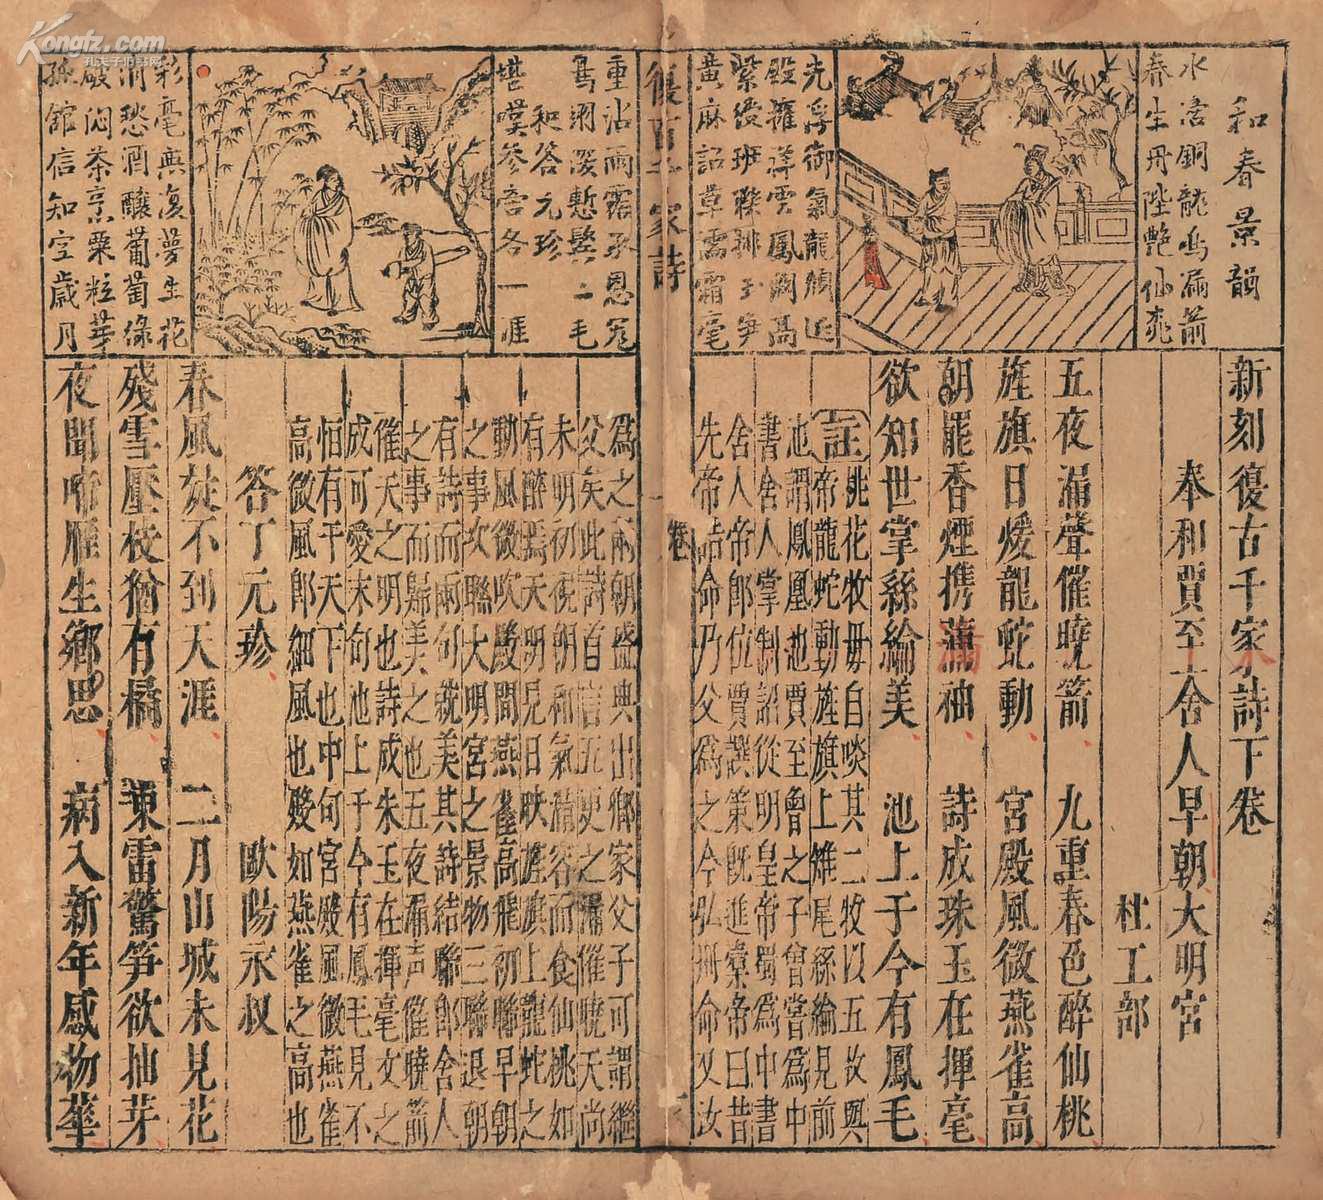 Kongfz.com
孔夫子旧书网
新刻復古千家詩下卷
奉和賈至舍人早朝大明宮
杜工部
五夜漏聲催曉箭 九重春色醉仙桃
旌旗日煖龍蛇動 宮殿風微燕雀高
朝罷香煙携滿袖 詩成珠玉在揮毫
欲知世掌絲綸美 池上于今有鳳毛
註
帝龍蛇動旌旗上雉尾絲綸見前
池謂鳳凰池賈至曾之子曾嘗為中
書舍人掌制詔從明皇帝蜀為中書
舍人帝即位賈譔策既進稾帝曰昔
先帝誥命乃父為之今弘冊命又汝
為之兩朝盛典出鄉家父子可謂繼
父矣此詩首言五更之漏催曉天尚
未明初夜朝和氣滿容而食仙桃如
有醉焉天明見日映旌旗上龍蛇之
動風微吹殿間燕雀高飛初聯早朝
之事次聯大明宮之景物三聯退朝
有詩而兩句就美其詩結聯郎舍人
之事而歸美之也五夜漏声催曉箭
催天之明也詩成朱玉在揮毫文之
成可愛末句池上于今有鳳毛見不
怕有干天下也中句宮殿風微燕雀
高微風郎細風也殿如燕雀之高也
答丁元珍
歐陽永叔
春風疑不到天涯 二月山城未見花
殘雪壓枝猶有橘 凍雷驚笋欲抽芽
夜聞啼雁生鄉思 病入新年感物華
和春景韻
水滴銅龍鳴漏箭
春生丹陛艷仙桃
先浮御氣龍顏近
殿擁祥雲鳳闕高
紫綬班聯排玉笋
黃麻詔草濡霜毫
重沾雨露承恩寵
馬
深慙鬂二毛
和答元珍
堪嘆參官各一涯
彩毫無復夢生花
消愁酒釀葡萄綠
破悶茶烹粟粒芽
孤館信知空歲月
復古千家詩
卷